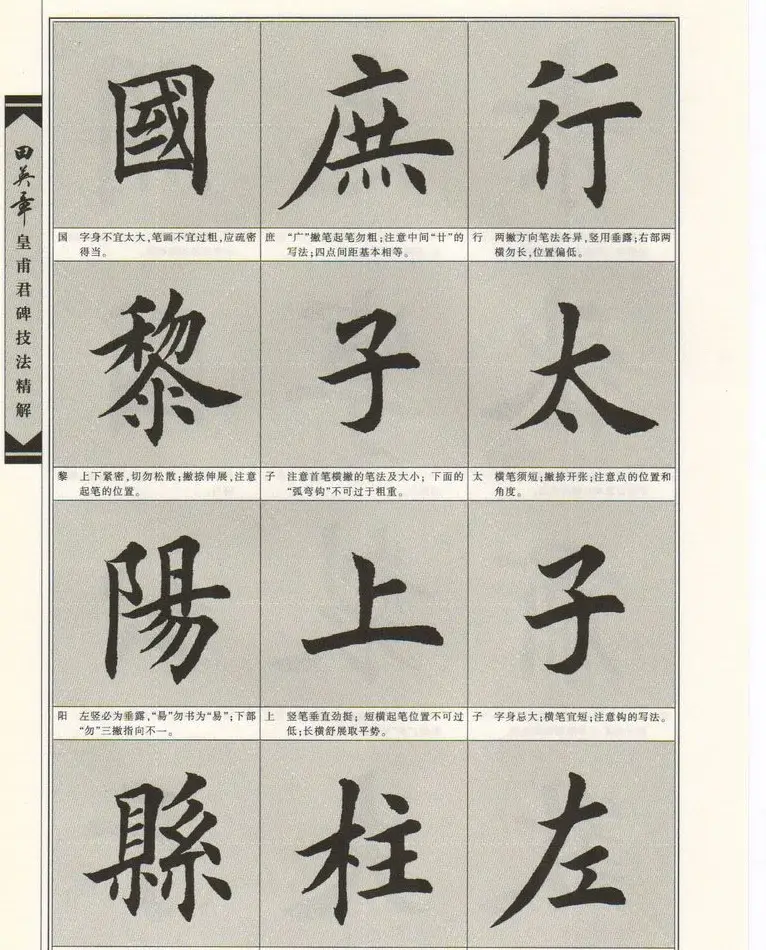 田英章皇甫君碑技法精解
行
行 两撇方向笔法各异,竖用垂露;右部两
横勿长,位置偏低。
太
太 横笔须短;撇捺开张;注意点的位置和
角度。
子
子 字身忌大;横笔宜短;注意钩的写法。
左
庶
庶 “广”撇笔起笔勿粗;注意中间“廿”的
写法;四点间距基本相等。
子
子 注意首笔横撇的笔法及大小;下面的
“弧弯钩”不可过于粗重。
上
上 竖笔垂直劲挺;短横起笔位置不可过
低;长横舒展取平势。
柱
國
国 字身不宜太大,笔画不宜过粗,应疏密
得当。
黎
黎 上下紧密,切勿松散;撇捺伸展,注意
起笔的位置。
陽
阳 左竖必为垂露,“昜”勿书为“易”;下部
“勿”三撇指向不一。
縣